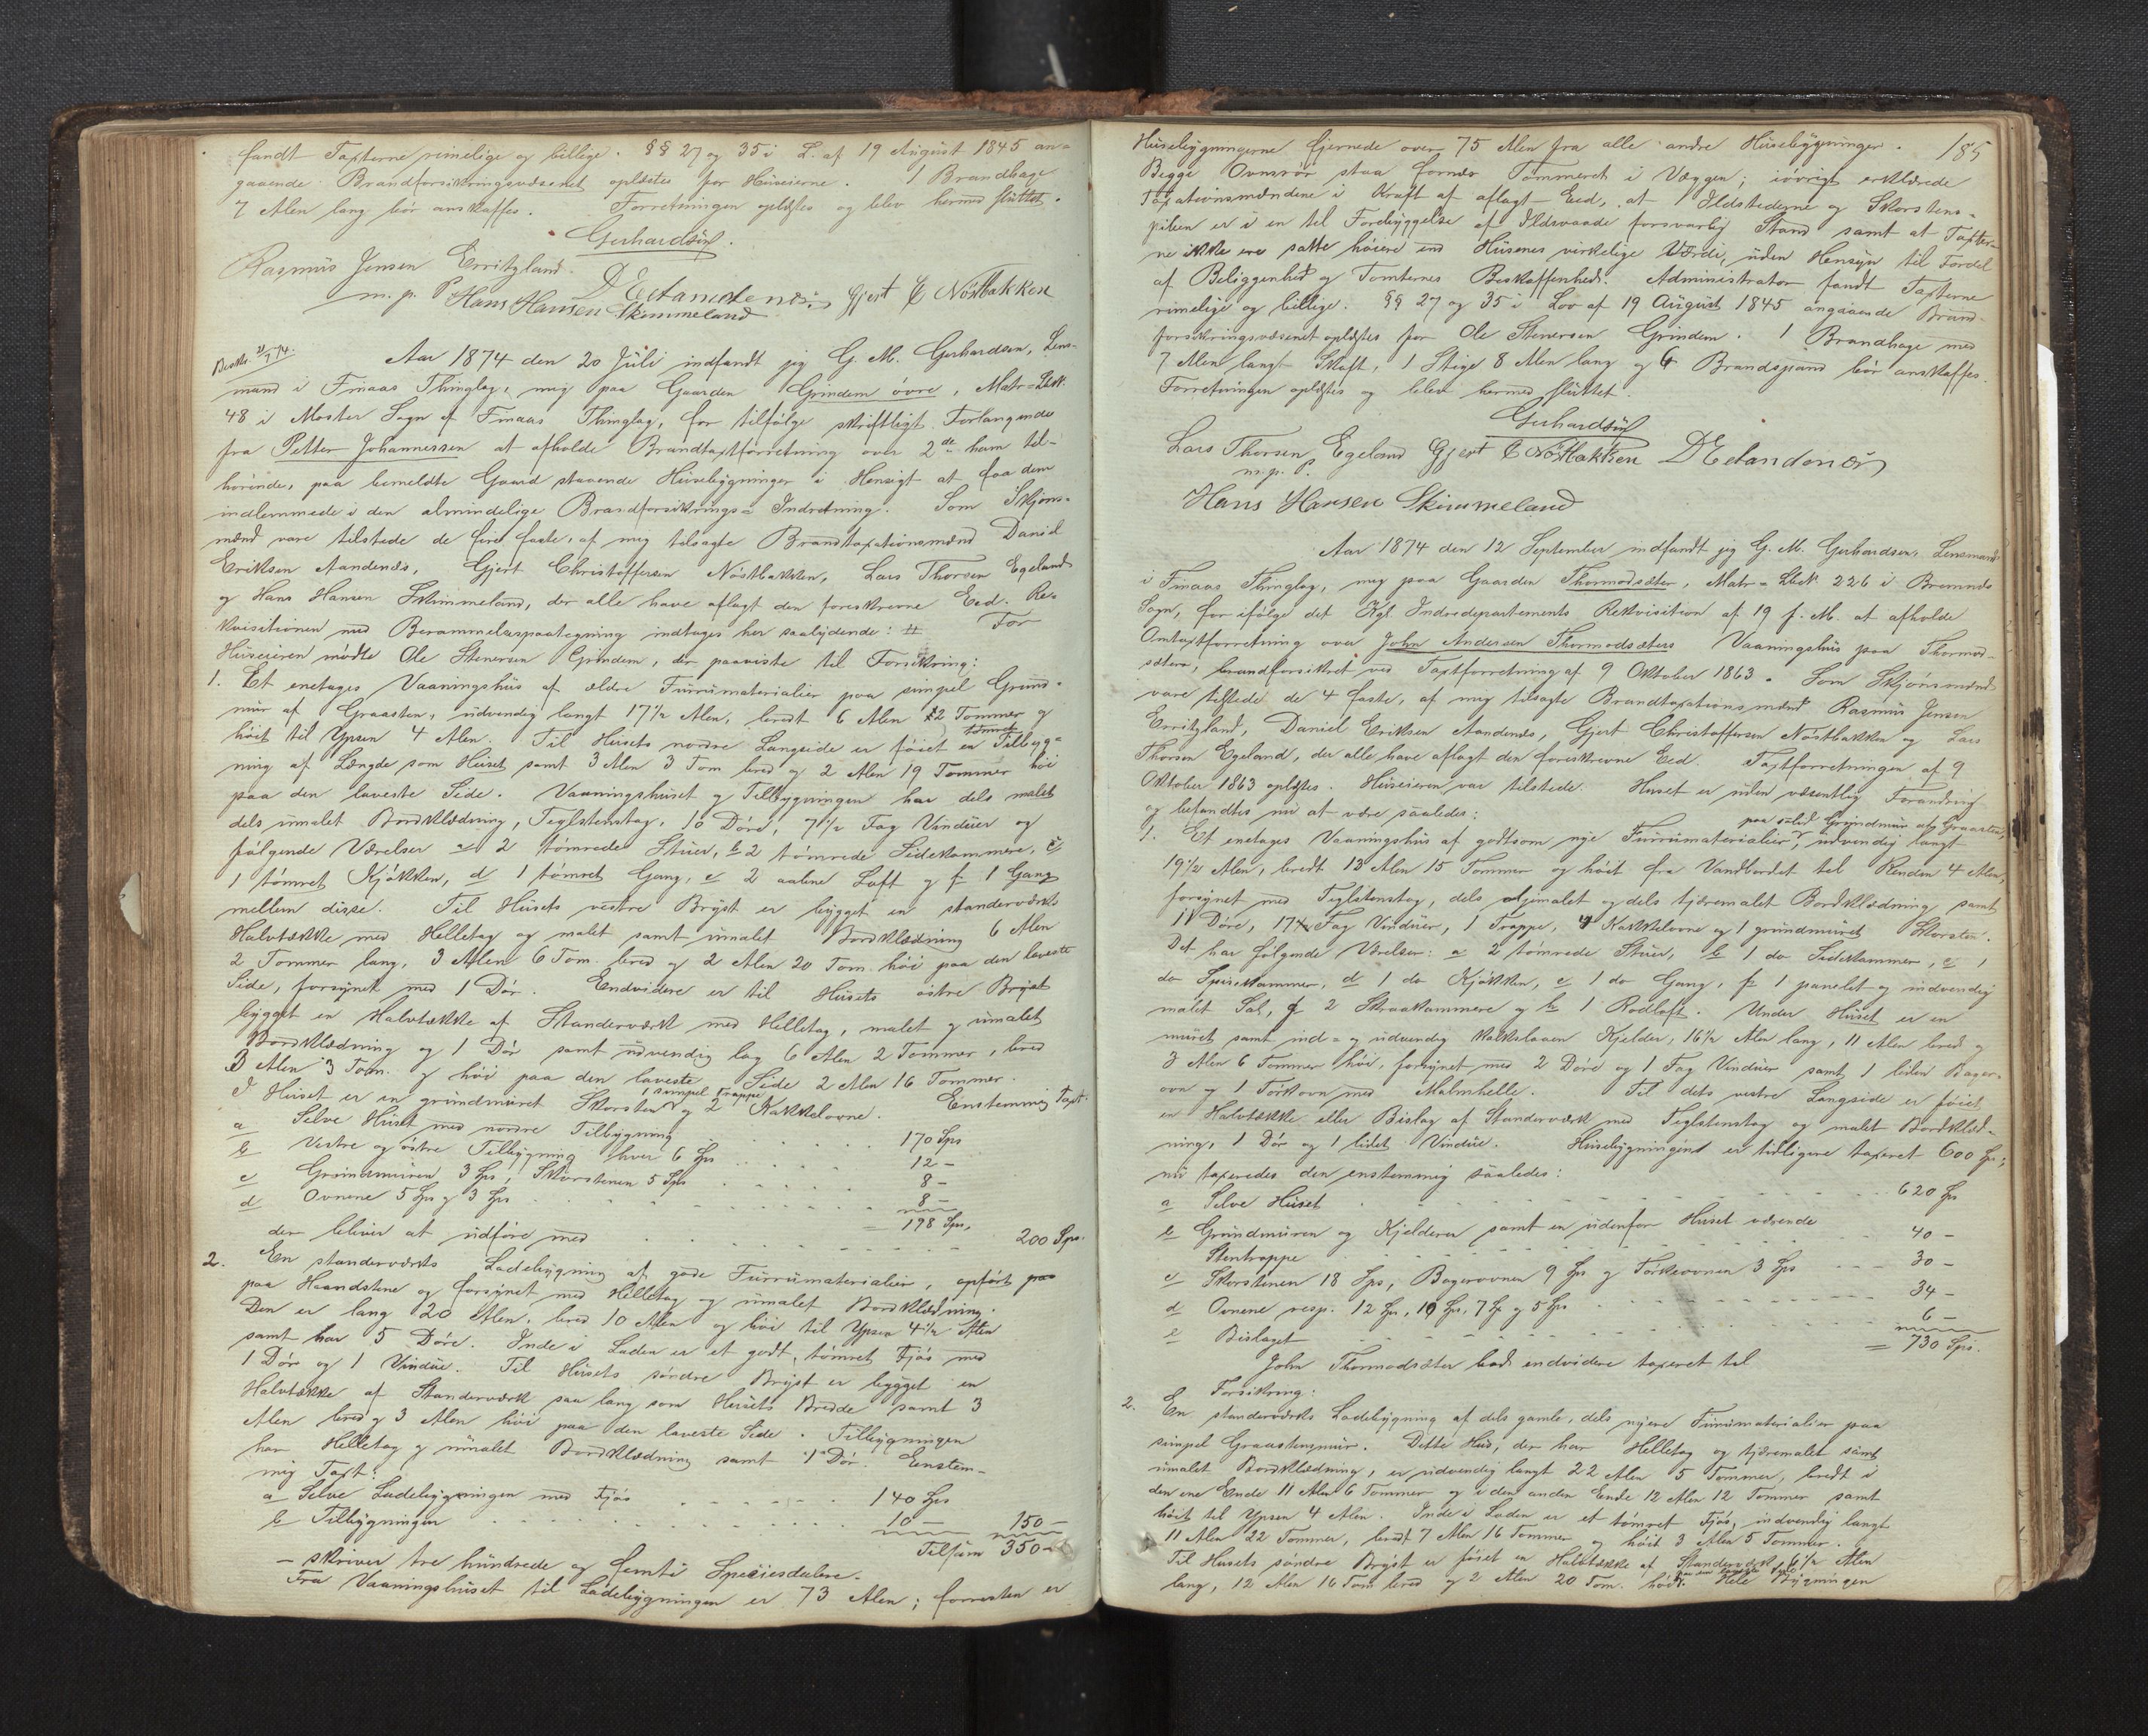 fandt Taxterne rimelige og billige. §§ 27 og 35 i L. af 19 August 1845 an-
gaaende Brandforsikringsvæsenet oplæstes for Huseierne. 1 Brandhage
7 Alen lang bør anskaffes. Forretningen oplæstes og blev hermed sluttet.
Gerhardsen
Rasmus Jensen Erritzland
m. p. P. Hans Hansen Skimmeland D E Aandenæs Gjert C Nøstbakken
Aar 1874 den 20 Juli indfandt jeg G. M. Gerhardsen, Lens-
mand i Finaas Thinglag, mig paa Gaarden Grindem øvre, Matr=Løb.
48 i Moster Sogn af Finaas Thinglag, for tilfølge skriftligt Forlangende
fra Petter Johannessen at afholde Brandtaxtforretning over 2de ham til-
hørende, paa bemeldte Gaard staaende Husebygninger i Hensigt at faa dem
indlemmede i den almindelige Brandforsikrings=Indretning. Som Skjøns-
mænd vare tilstede de fire faste, af mig tilsagte Brandtaxationsmænd Daniel
Eriksen Aandenæs, Gjert Christoffersen Nøstbakken, Lars Thorsen Egeland
og Hans Hansen Skimmeland, der alle have aflagt den foreskrevne Eed. Re-
kvisitionen med Berammelsespaategning indtages her saalydende: # For
Huseieren mødte Ole Stenersen Grindem, der paaviste til Forsikring:
1. Et enetages Vaaningshus af ældre Furumaterialier paa simpel Grund-
mur af Graasten, udvendig langt 17½ Alen, bredt 6 Alen 12 Tommer og
høit til Ypsen 4 Alen. Til Husets nordre Langside er føiet en tømret Tilbyg-
ning af Længde som Huset samt 3 Alen 3 Tom bred og 2 Alen 19 Tommer høi
paa den laveste Side. Vaaningshuset og Tilbygningen har dels malet
dels umalet Bordklædning, Teglstenstag, 10 Døre, 7½ Fag Vinduer og
følgende Værelser a 2 tømrede Stuer, b 2 tømrede Sidekammere, c
1 tømret Kjøkken, d 1 tømret Gang, e 2 aabne Loft og f 1 Gang
mellem disse. Til Husets vestre Bryst er bygget en standerværks
Halvtække med Helletag og malet samt umalet Bordklædning 6 Alen
2 Tommer lang, 3 Alen 6 Tom. bred og 2 Alen 20 Tom. høi paa den laveste
Side, forsynet med 1 Dør. Endvidere er til Husets østre Bryst
bygget en Halvtække af Standerværk med Helletag, malet og umalet
Bordklædning og 1 Dør samt udvendig lag 6 Alen 2 Tommer, bred
3 Alen 3 Tom. og høi paa den laveste Side 2 Alen 16 Tommer.
I Huset er en grundmuret Skorsten, 1 simpel Trappe og 2 Kakkelovne. Enstemmig Taxt:
a Selve Huset med nordre Tilbygning 170 Spd
b Vestre og østre Tilbygning hver 6 Spd 12 -
c Grundmuren 3 Spd, Skorstenen 5 Spd 8 -
d Ovnene 5 Spd og 3 Spd 8 -
= 198 Spd.
der bliver at udføre med 200 Spd.
2. En standerværks Ladebygning af gode Furrumaterialier, opført paa
paa Haandstene og forsynet med Helletag og umalet Bordklædning.
Den er lang 20 Alen, bred 10 Alen og høi til Ypsen 4½ Alen
samt har 5 Døre. Inde i Laden er et godt, tømret Fjøs med
1 Dør og 1 Vindue. Til Husets søndre Bryst er bygget en
Halvtække af Standerværk saa lang som Husets Bredde samt 3
Alen bred og 3 Alen høi paa den laveste Side. Tilbygningen
har Helletag og umalet Bordklædning samt 1 Dør. Enstem-
mig Taxt:
a Selve Ladebygningen med Fjøs 140 Spd
b Tilbygningen 10 - 150 -
Tilsam 350 -
- skriver tre hundrede og femti Speciesdalere.
Fra Vaaningshuset til Ladebygningen er 73 Alen; forresten er
185
Husebygningerne fjernede over 75 Alen fra alle andre Husebygninger.
Begge Ovnsrør staa fornær Tømmeret i Væggen; iøvrigt erklærede
Taxationsmændene i Kraft af aflagt Eed, at Ildstederne og Skorstens-
piben er i en til Forebyggelse af Ildsvaade forsvarlig Stand samt at Taxter-
ne ikke ere satte høiere end Husenes virkelige Værdi, uden Hensyn til Fordel
af Beliggenhed og Tomternes Beskaffenhed. Administrator fandt Taxterne
rimelige og billige. §§ 27 og 35 i Lov af 19 August 1845 angaaende Brand-
forsikringsvæsenet oplæstes for Ole Stenersen Grindem. 1 Brandhage med
7 Alen langt Skaft, 1 Stige 8 Alen lang og 6 Brandspand bør anskaffes.
Forretningen oplæstes og blev hermed sluttet.
Gerhardsen
Lars Thorsen Egeland Gjert C Nøstbakken D E Aandenæs
m. p. P.
Hans Hansen Skimmeland
Aar 1874 den 12 September indfandt jeg G. M. Gerhardsen, Lensmand
i Finaas Thinglag, mig paa Gaarden Thormodsæter, Matr=Løb. 226 i Bremnæs
Sogn, for ifølge det Kgl. Indredepartements Rekvisition af 19 f. M. at afholde
Omtaxtforretning over John Andersen Thormodsæters Vaaningshus paa Thormod-
sæter, brandforsikret ved Taxtforretning af 9 Oktober 1863. Som Skjønsmænd
vare tilstede de 4 faste, af mig tilsagte Brandtaxationsmænd Rasmus Jensen
Erritzland, Daniel Eriksen Aandenæs, Gjert Christoffersen Nøstbakken og Lars
Thorsen Egeland, der alle have aflagt den foreskrevne Eed. Taxtforretningen af 9
Oktober 1863 oplæstes. Huseieren var tilstede. Huset er uden væsentlig Forandring
og befandtes nu at være saaledes:
1. Et enetages Vaaningshus af godtsom nye Furrumaterialier paa solid Grundmur af Graasten, udvendig langt
19½ Alen, bredt 13 Alen 15 Tommer og høit fra Vandbordet til Renden 4 Alen,
forsynet med Teglstenstag, dels oljemalet og dels tjæremalet Bordklædning samt
11 Døre, 17 Fag Vinduer, 1 Trappe, 4 Kakkelovne og 1 grundmuret Skorsten.
Det har følgende Værelser: a 2 tømrede Stuer, b 1 do Sidekammer, c 1
do Spisekammer, d 1 do Kjøkken, e 1 do Gang, f 1 panelet og indvendig
malet Sal, g 2 Skraakammere og h 1 Rodloft. Under Huset er en
muret samt ind= og udvendig kalkslaaen Kjelder, 16½ Alen lang, 11 Alen bred og
3 Alen 6 Tommer høi, forsynet med 2 Døre og 1 Fag Vinduer samt 1 liden Bager-
ovn og 1 Tørkovn med Malmhelle. Til dets vestre Langside er føiet
en Halvtække eller Bislag af Standerværk med Teglstenstag og malet Bordklæd-
ning, 1 Dør og 1 lidet Vindue. Husebygningen er tidligere taxeret 600 Spd;
nu taxeredes den enstemmig saaledes:
a Selve Huset 620 Spd
b Grundmuren og Kjelderen samt en udenfor Huset værende
Stentrappe 40 -
c Skorstenen 18 Spd, Bagerovnen 9 Spd og Tørkeovnen 3 Spd 30 -
d Ovnene resp. 12 Spd, 10 Spd, 7 Spd og 5 Spd 34 -
e Bislaget 6 -
= 730 Spd.
John Thormodsæter bad endvidere taxeret til
Forsikring:
2. En standerværks Ladebygning af dels gamle, dels nyere Furumaterialier paa
simpel Graastensmur. Dette Hus, der har Helletag og tjæremalet samt
umalet Bordklædning, er udvendig langt 22 Alen 5 Tommer, bredt i
den ene Ende 11 Alen 6 Tommer og i den anden Ende 12 Alen 12 Tommer samt
høit til Ypsen 4 Alen. Inde i Laden er et tømret Fjøs, indvendig langt
11 Alen 22 Tommer, bredt 7 Alen 16 Tommer og høit 3 Alen 5 Tommer.
Til Husets søndre Bryst er føiet en Halvtække af Standerværk 6½ Alen
lang, 12 Alen 16 Tom bred og 2 Alen 20 Tom. høi. Hele Bygningen